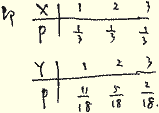 即 X 1 2 3
P 1/3 1/3 1/3
Y 1 2 3
P 11/18 5/18 2/18